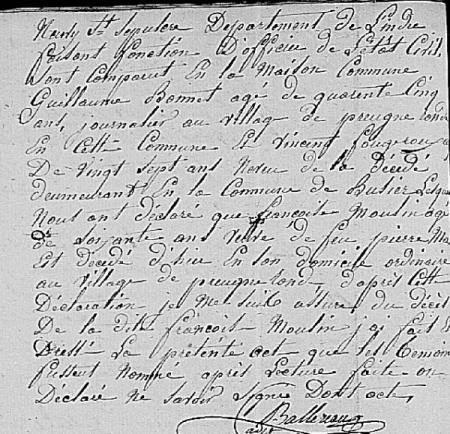 Neuvy St Sepulcre Departement de L'indre
faisant fonction D'officier de L'etat Civil,
Sont Comparut En la Maison Commune
Guillaume Bonnet agé de quarente Cinq
ans, journalier au village de preugne
En Cette Commune Et Vincent
De Vingt Sept ans Neveu de la décédé
demeurant En la Commune de
Nous ont déclaré que françoise Moulin agé
de Soixante ans Veuve de feu pierre
Est Décédé d'hier En Son domicile ordinaire
au Village de preugne d'après Cette
Déclaration je Me Suis assuré du Décès
De la dite françoise Moulin j'ai fait Et
Dressé La présente act que les temoins
Nommé après Lecture faite on
Déclaré ne Savoir Signer Dont acte,
Ballereau